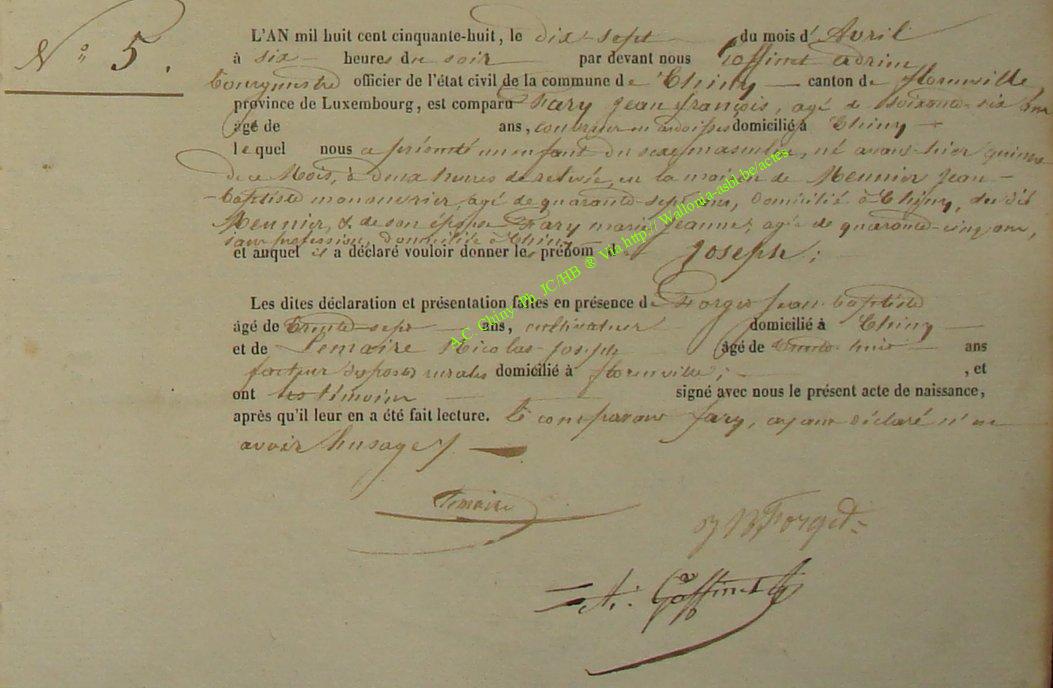 N.° 5.
L'AN mil huit cent cinquante-huit, le dix-sept du mois d'Avril
à six heures du soir par devant nous Goffinet adrien
Bourgmestre officier de l'état civil de la commune de Chiny canton de florenville
province de Luxembourg, est comparu Fary jean françois, agé de Soixante-six ans
âgé de ans, couvreur en ardoises domicilié à Chiny
lequel nous a présenté un enfant du sexe masculin, né avant-hier quinze
de ce Mois, à deux heures de relevée, en la maison de Meunier Jean-
baptiste manouvrier, agé de quarante-sept ans, domicilié à Chiny, du dit
Meunier, & de son épouse Fary marie jeanne, agé de quarante-cinq ans,
sans profession, domiciliée à Chiny
et auquel il a déclaré vouloir donner les prénom de Joseph;
Les dites déclaration et présentation faites en présence de Forget Jean-baptiste
âgé de trente-sept ans, cultivateur domicilié à Chiny
et de Lemaire Nicolas-joseph âgé de trente-huit ans
facteur des postes rurales domicilié à florenville; , et
ont les témoins signé avec nous le présent acte de naissance,
après qu'il leur en a été fait lecture. le comparant fary, ayant déclaré n'en
avoir l'usage
Lemaire
J B Forget
A. Goffinet
A.C. Chiny Ph. JC/HB ® Via http:// Wallonia-asbl.be/actes